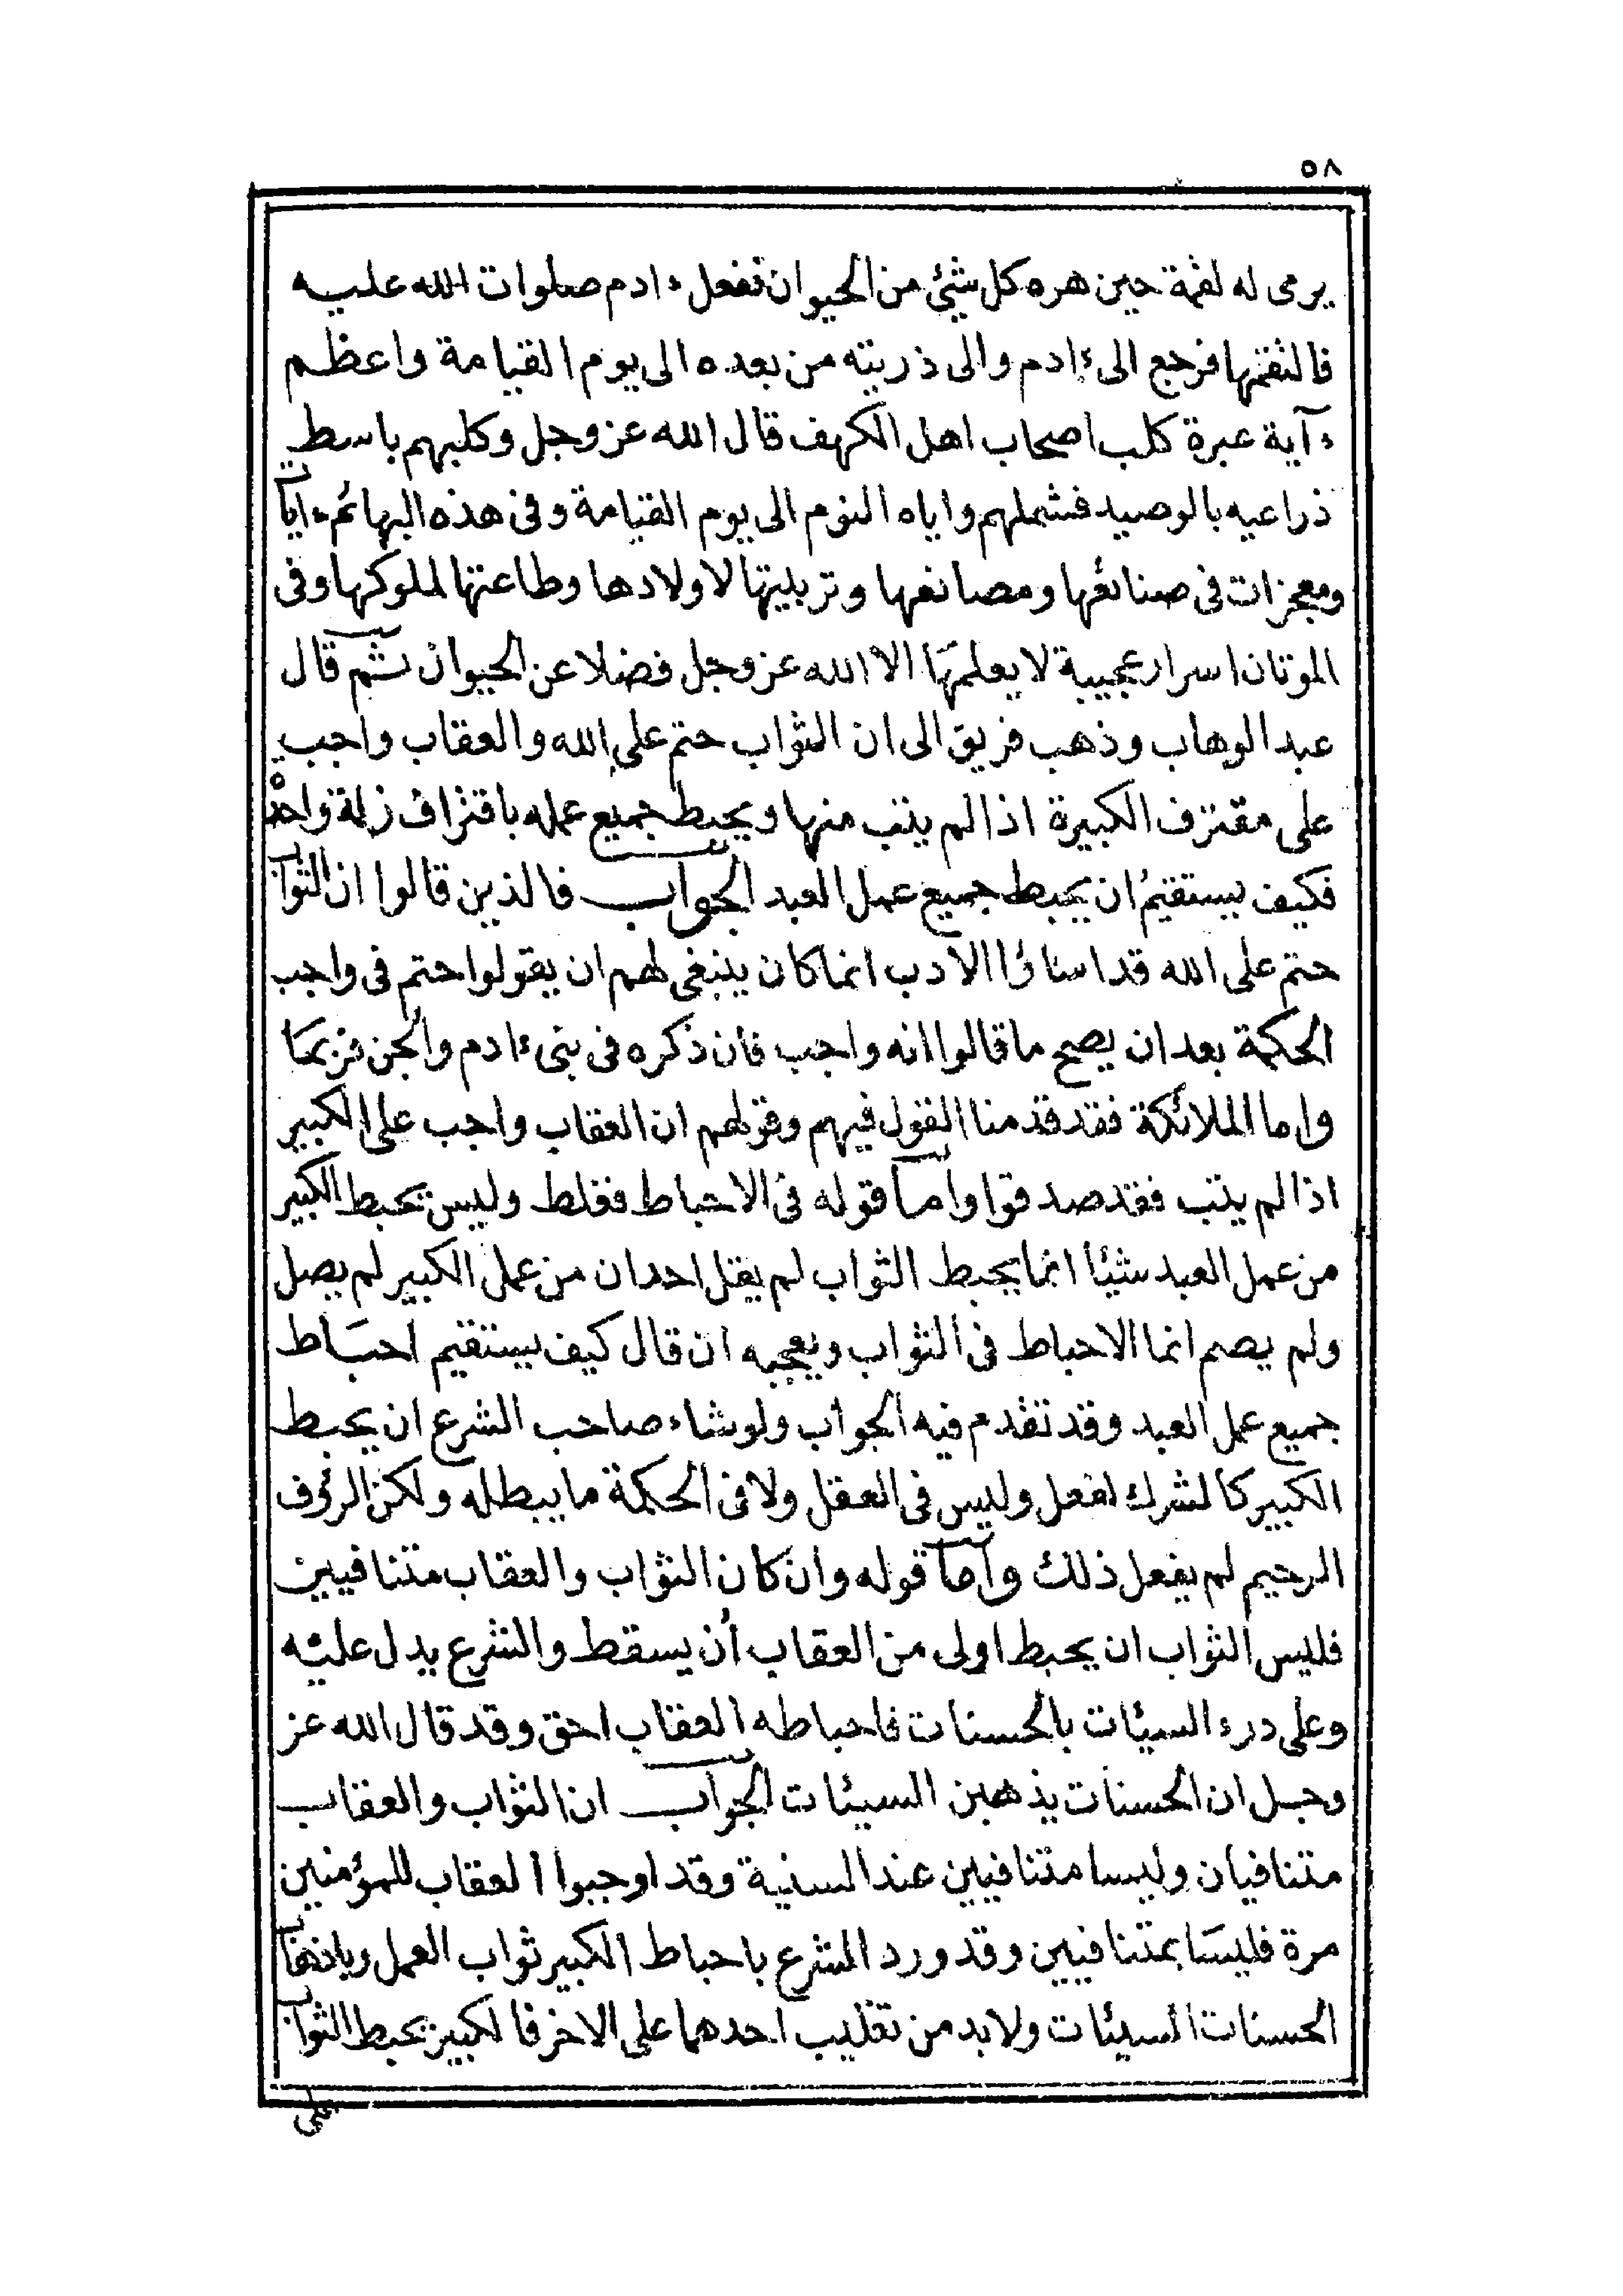 ٥٨
يرمى له لقمة حين هره كل شئ من الحيوان ففعل ءادم صلوات الله عليه
فالتقمها فرجع الى ءادم والى ذريته من بعده الى يوم القيامة واعظم
ءآية عبرة كلب اصحاب اهل الكهف قال الله عز وجل وكلبهم باسط
ذراعيه بالوصيد فشملهم واياه النوم الى يوم القيامة وفى هذه البهائم ءايات
ومعجزات فى صنائعها ومصانعها وتربيتها لاولادها وطاعتها لملوكها وفى
الموتان اسرار عجيبة لا يعلمها الا الله عز وجل فضلا عن الحيوان ثم قال
عبد الوهاب وذهب فريق الى ان الثواب حتم على الله والعقاب واجب
على مقترف الكبيرة اذا لم يتب منها ويحبط جميع عمله باقتراف زلة واحدة
فكيف يستقيم ان يحبط جميع عمل العبد الجواب فالذين قالوا ان الثواب
حتم على الله قد اسائوا الادب انما كان ينبغى لهم ان يقولوا حتم فى واجب
الحكمة بعد ان يصح ما قالوا انه واجب فان ذكره فى بنى ءادم والجن فربما
واما الملائكة فقد قدمنا القول فيهم وقولهم ان العقاب واجب على الكبير
اذا لم يتب فقد صدقوا واما قوله فى الاحباط فغلط وليس يحبط الكبير
من عمل العبد شيئا انما يحبط الثواب لم يقل احد ان من عمل الكبير لم يصل
ولم يصم انما الاحباط فى الثواب ويعجبه ان قال كيف يستقيم احباط
جميع عمل العبد وقد تقدم فيه الجواب ولو شاء صاحب الشرع ان يحبط
الكبير كالشرك لفعل وليس فى العقل ولا فى الحكمة ما يبطله ولكن الرئوف
الرحيم لم يفعل ذلك واما قوله وان كان الثواب والعقاب متنافيين
فليس الثواب ان يحبط اولى من العقاب أن يسقط والشرع يدل عليه
وعلى درء السيئات بالحسنات فاحباطه العقاب احق وقد قال الله عز
وجل ان الحسنات يذهبن السيئات الجواب ان الثواب والعقاب
متنافيان وليسا متنافيين عند السنية وقد اوجبوا العقاب للمؤمنين
مرة فليسا بمتنافيين وقد ورد الشرع باحباط الكبير ثواب العمل وباذهاب
الحسنات السيئات ولابد من تغليب احدهما على الاخر فالكبير يحبط الثواب
على